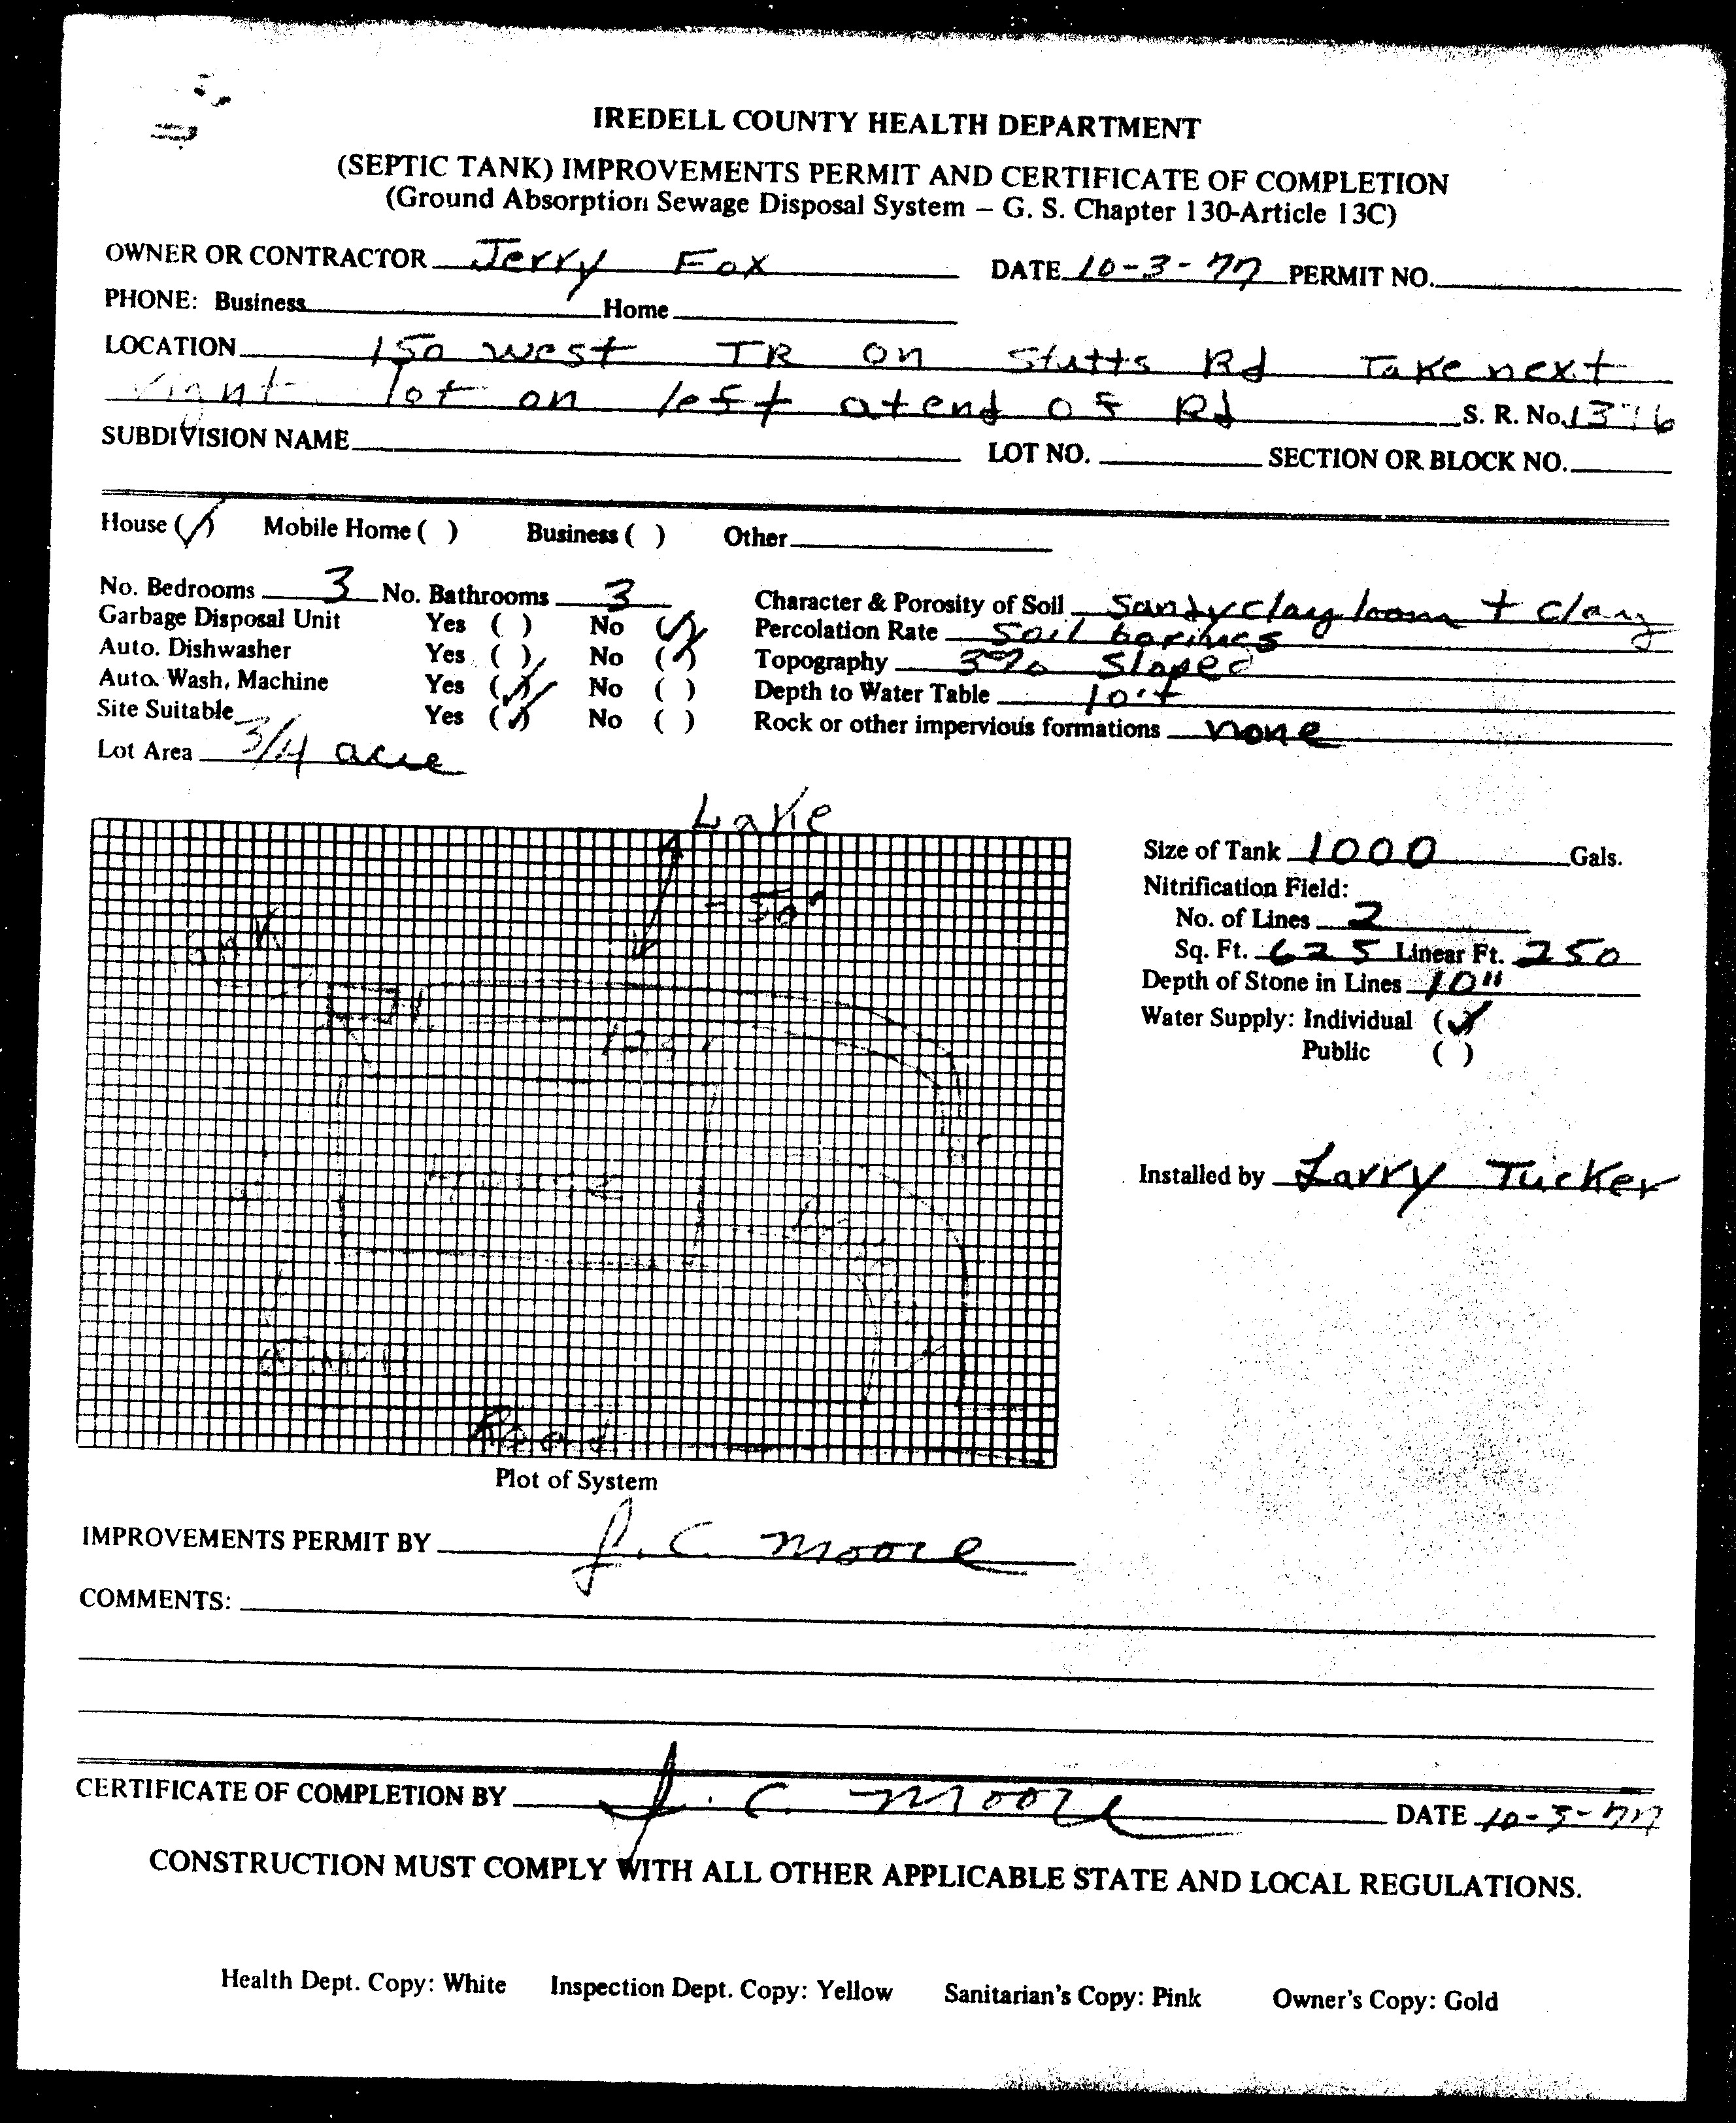 IREDELL COUNTY HEALTH DEPARTMENT
(SEPTIC TANK) IMPROVEMENTS PERMIT AND CERTIFICATE OF COMPLETION
(Ground Absorption Sewage Disposal System – G. S. Chapter 130-Article 13C)
OWNER OR CONTRACTOR Jerry Fox DATE 10-3-77 PERMIT NO.
PHONE: Business Home
LOCATION 150 west TR on Stutts Rd Take next
right lot on left at end of Rd S. R. No.
SUBDIVISION NAME LOT NO. SECTION OR BLOCK NO.
House (✓) Mobile Home ( ) Business ( ) Other
No. Bedrooms 3 No. Bathrooms 3
Garbage Disposal Unit Yes ( ) No (✓)
Auto. Dishwasher Yes ( ) No (✓)
Auto. Wash, Machine Yes (✓) No ( )
Site Suitable Yes (✓) No ( )
Lot Area 3/4 acre
Character & Porosity of Soil Sandy clay loam + clay
Percolation Rate Soil borings
Topography 3% Sloped
Depth to Water Table 10'+
Rock or other impervious formations none
Lake
Size of Tank 1000 Gals.
Nitrification Field:
No. of Lines 2
Sq. Ft. 625 Linear Ft. 250
Depth of Stone in Lines 10"
Water Supply: Individual (✓)
Public ( )
Installed by Larry Tucker
Road
Plot of System
IMPROVEMENTS PERMIT BY J. C. Moore
COMMENTS:
CERTIFICATE OF COMPLETION BY J. C. Moore DATE
CONSTRUCTION MUST COMPLY WITH ALL OTHER APPLICABLE STATE AND LOCAL REGULATIONS.
Health Dept. Copy: White Inspection Dept. Copy: Yellow Sanitarian's Copy: Pink Owner's Copy: Gold